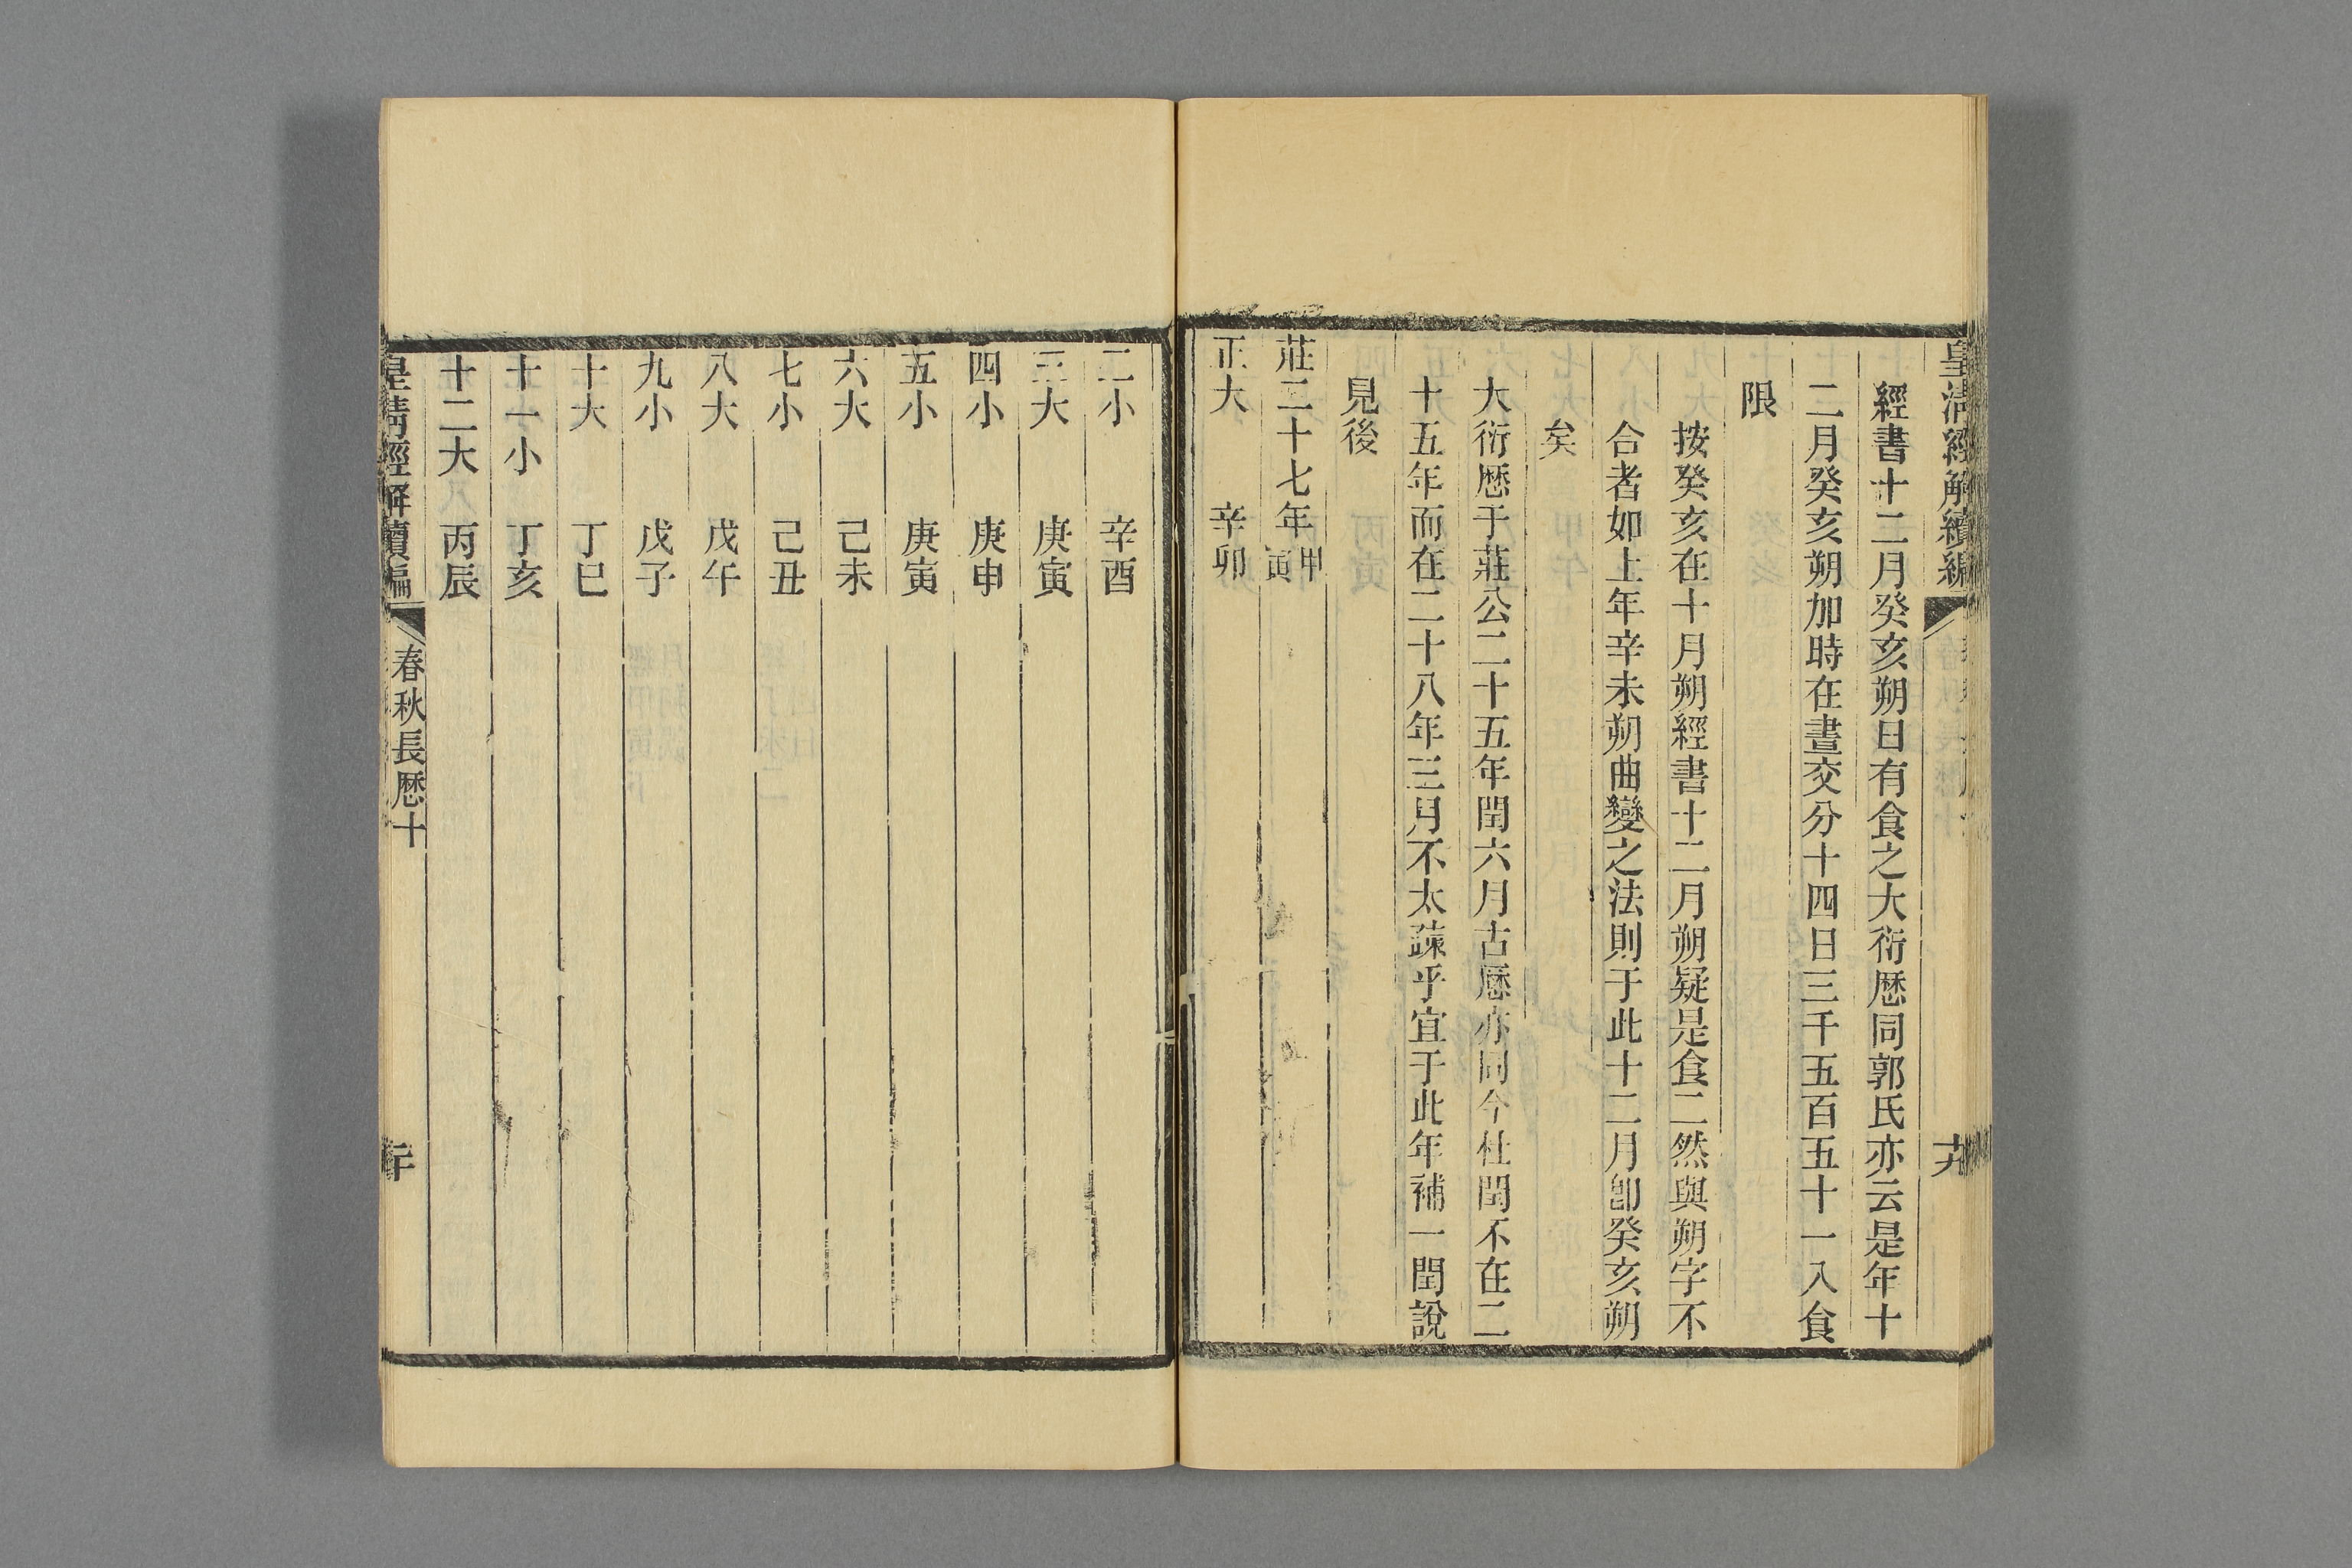 皇清經解續編
十九
經書十二月癸亥朔日有食之大衍厯同郭氏亦云是年十
二月癸亥朔加時在晝交分十四日三千五百五十一入食
限
按癸亥在十月朔經書十二月朔疑是食二然與朔字不
合者如上年辛未朔曲變之法則于此十二月卽癸亥朔
矣
大衍厯于莊公二十五年閏六月古厯亦同今杜閏不在二
十五年而在二十八年三月不太疎乎宜于此年補一閏說
見後
莊二十七年甲寅
正大 辛卯
二小 辛酉
三大 庚寅
四小 庚申
五小 庚寅
六大 己未
七小 己丑
八大 戊午
九小 戊子
十大 丁巳
十一小 丁亥
十二大 丙辰
皇清經解續編
春秋長厯十